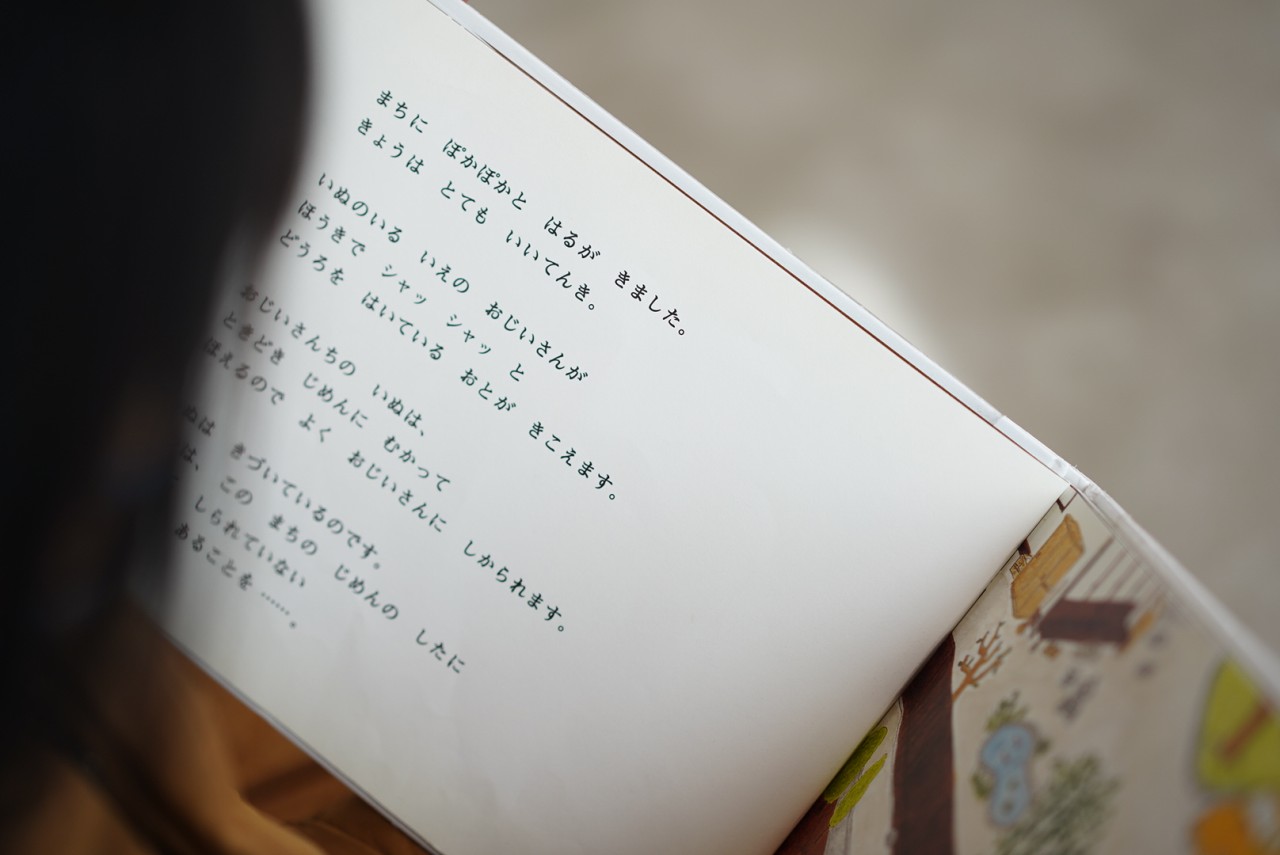 まちに　ぽかぽかと　はるが　きました。
きょうは　とても　いいてんき。
いぬのいる　いえの　おじいさんが
ほうきで　シャッ　シャッ　と
どうろを　はいている　おとが　きこえます。
おじいさんちの　いぬは、
ときどき　じめんに　むかって
ほえるので　よく　おじいさんに　しかられます。
ぬは　きづいているのです。
は、　この　まちの　じめんの　したに
しられていない
あることを……。